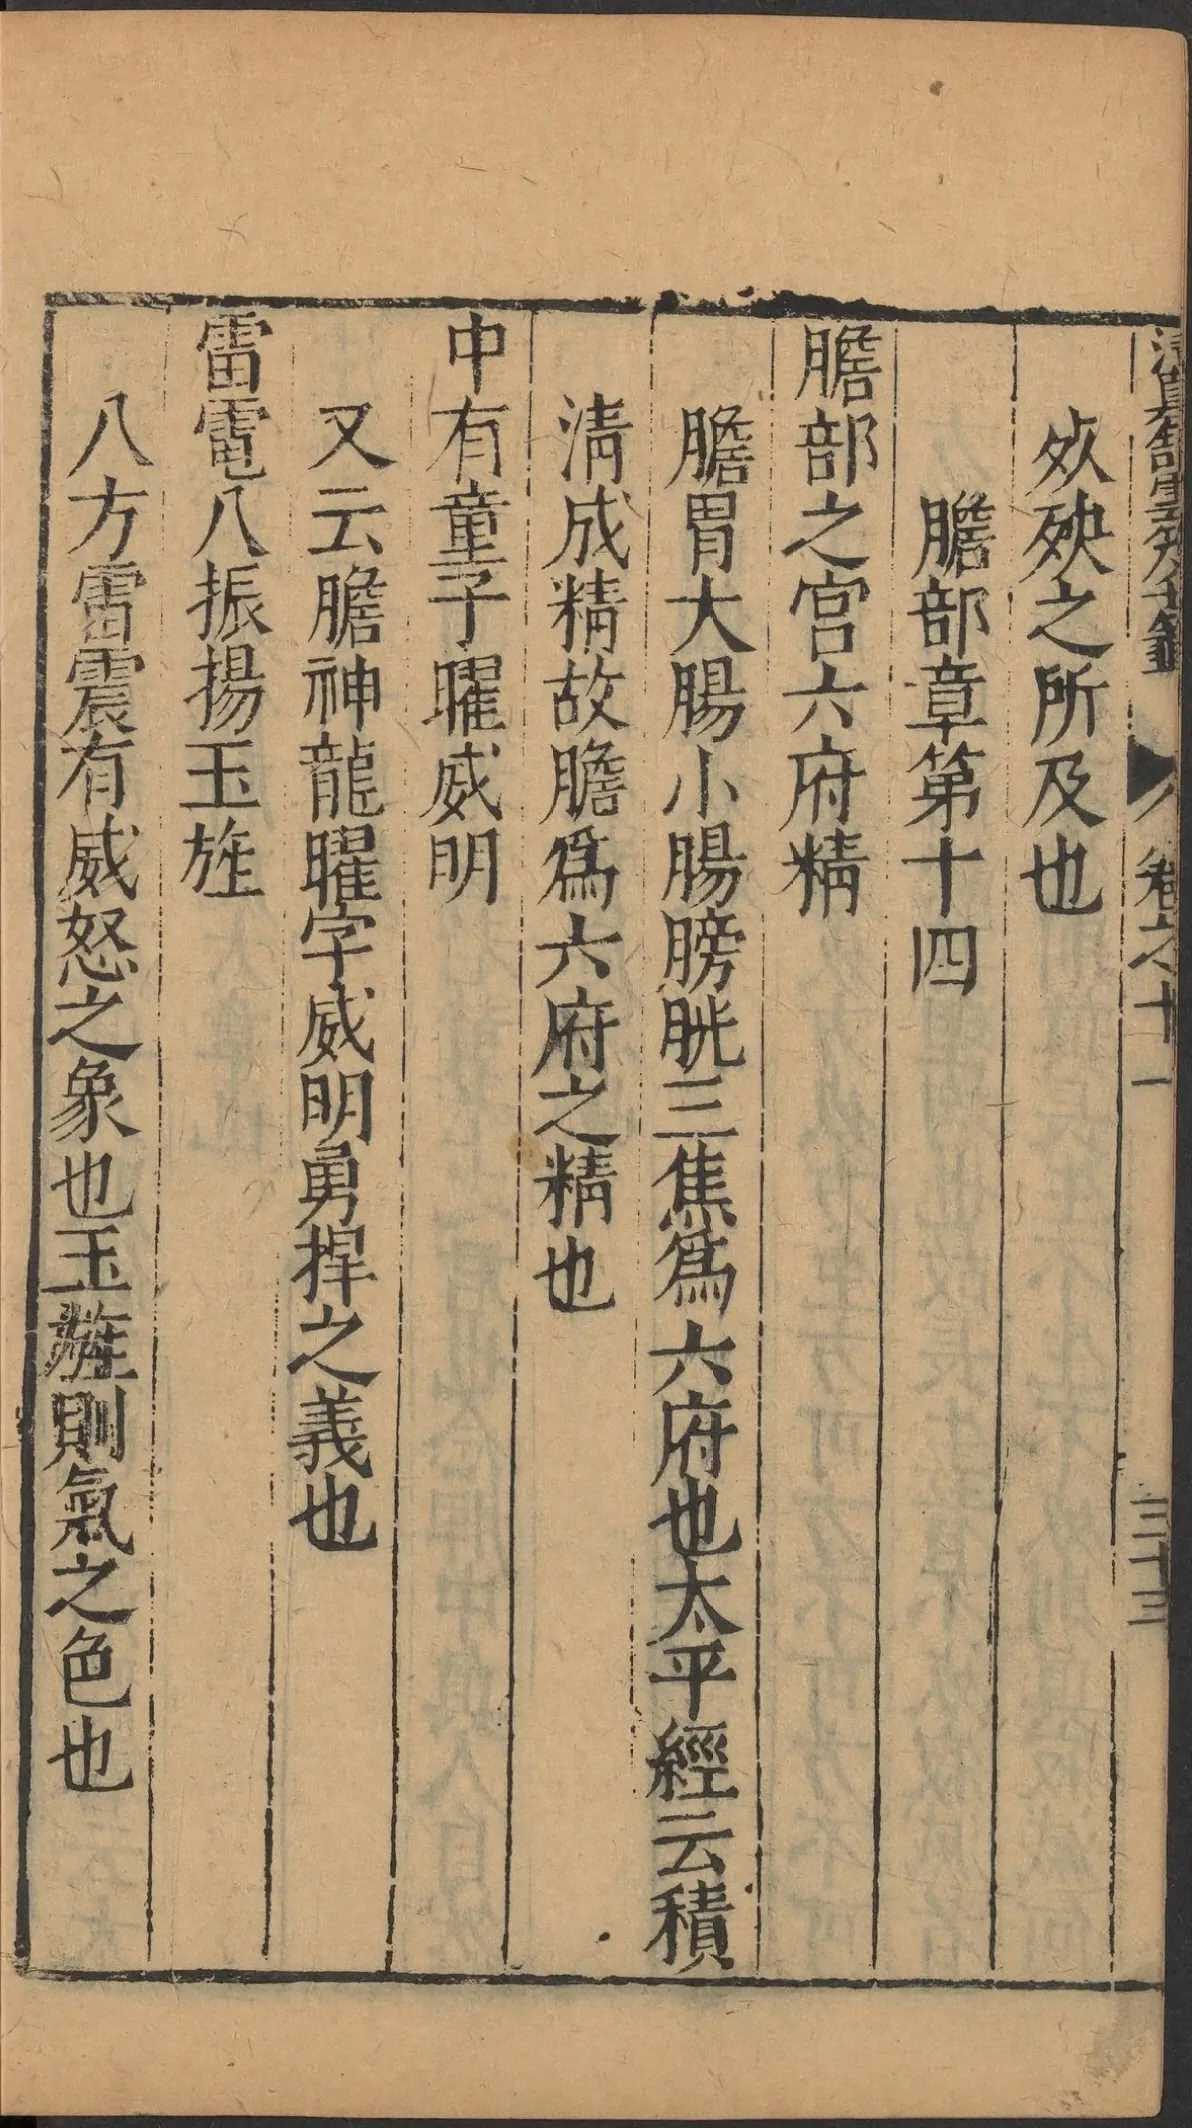 清真館雲笈七籤 卷之十一 三十三
殀殃之所及也
膽部章第十四
膽部之宮六府精
膽胃大腸小腸膀胱三焦爲六府也太平經云積
淸成精故膽爲六府之精也
中有童子曜威明
又云膽神龍曜字威明勇捍之義也
雷電八振揚玉旌
八方雷震有威怒之象也玉旌則氣之色也